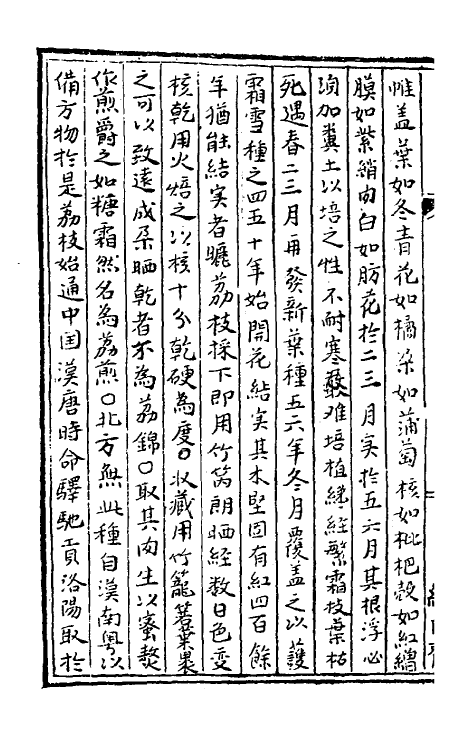 帷盖葉如冬青花如橘朶如蒲萄核如枇杷殼如紅繒
膜如紫綃肉白如肪花於二三月実於五六月其根浮必
須加糞土以培之性不耐寒㝡难培植纔経繁霜枝葉枯
死遇春二三月再發新葉種五六年冬月覆盖之以護
霜雪種之四五十年始開花結实其木堅固有紅四百餘
年猶能結实者曬荔枝採下即用竹䈥朗晒経数日色变
核乾用火焙之以核十分乾硬為度〇収藏用竹籠箬葉裹
之可以致遠成朶晒乾者名為荔錦〇取其肉生以蜜熬
作煎爵之如糖霜然名為荔煎〇北方無此種自漢南粤以
備方物於是荔枝始通中国漢唐時命驛馳貢洛陽取於